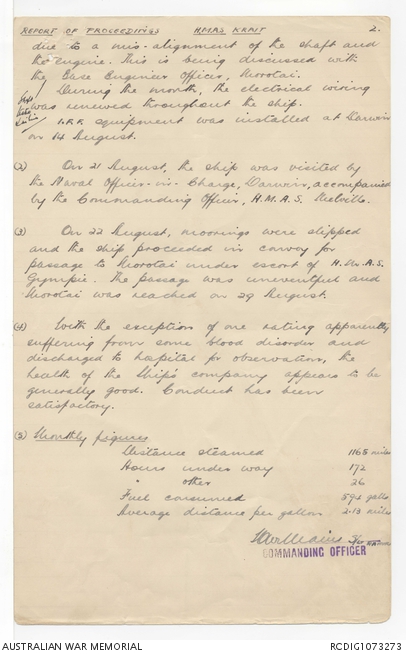 REPORT OF PROCEEDINGS HMAS KRAIT 2.
due to a mis-alignment of the shaft and
the engine. This is being discussed with
the Base Engineer Officer, Morotai.
During the month, the electrical wiring
was renewed throughout the ship.
I.F.F. equipment was installed at Darwin
on 14 August.
(2) On 21 August, the ship was visited by
the Naval Officer-in-Charge, Darwin, accompanied
by the Commanding Officer, H.M.A.S. Melville.
(3) On 22 August, moorings were slipped
and the ship proceeded in convoy for
passage to Morotai under escort of H.M.A.S.
Gympie. The passage was uneventful and
Morotai was reached on 29 August.
(4) With the exception of one rating apparently
suffering from some blood disorder and
discharged to hospital for observation, the
health of the Ship's company appears to be
generally good. Conduct has been
satisfactory.
(5) Monthly figures
Distance steamed 1165 miles
Hours under way 172
" other 26
Fuel consumed 594 galls
Average distance per gallon 2.13 miles
COMMANDING OFFICER
AUSTRALIAN WAR MEMORIAL RCDIG1073273